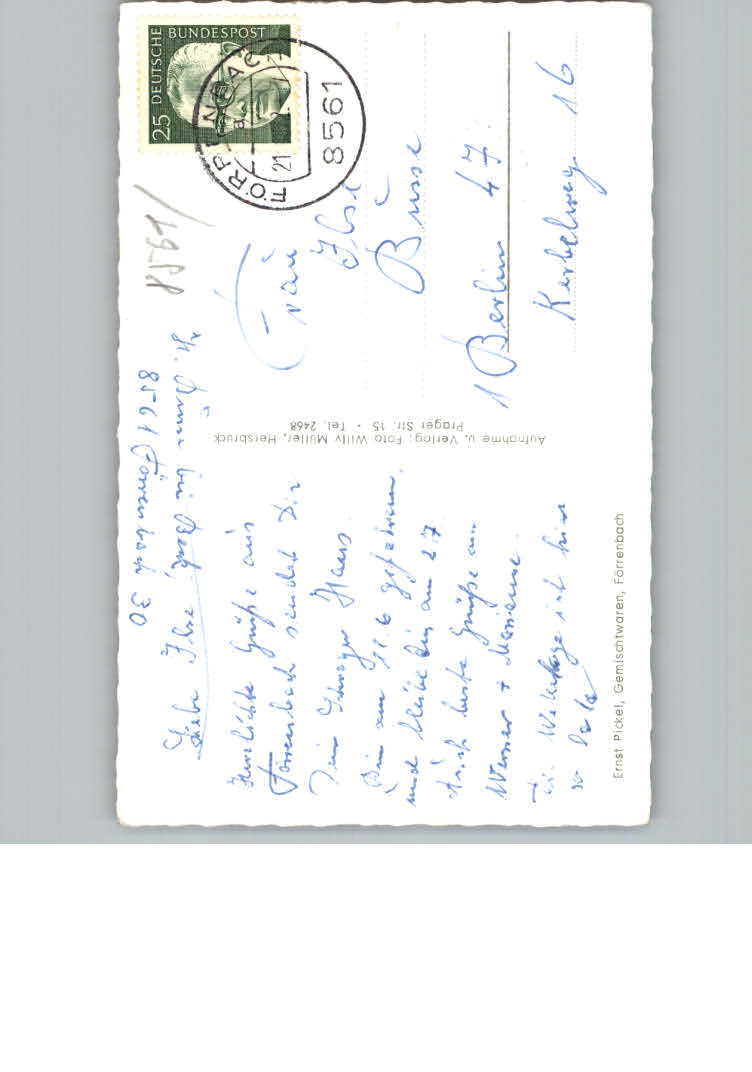 8561 Förrenbach 30
Liebe Ilse,
Herzlichste Grüße aus
Förrenbach sendet Dir
Dein Schwager Hans
Bin am 11.6 gefahren
und bleibe bis am 2.7
Auch beste Grüße an
Werner + Marianne.
Die Wetterlage ist hier
so lala
Ernst Pickel, Gemischtwaren, Förrenbach
Aufnahme u. Verlag: Foto Willy Müller, Hersbruck
Prager Str. 15 • Tel. 2468
8561
25 DEUTSCHE BUNDESPOST
FÖRRENBACH
21
8561
Frau
Ilse
Busse
1 Berlin 47.
Kerbelweg 16